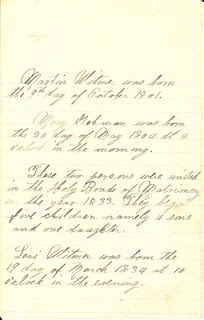 Martin Witmer was born
the 9th day of October 1801.
Mary Lehman was born
the 20 day of May 1804 at 2
oclock in the morning.
These two persons were united
in the Holy Bonds of Matrimony
in the year 1833. They begat
five children namely 4 sons
and one daughter.
Levi Witmer was born the
19 day of March 1834 at 10
oclock in the evening.